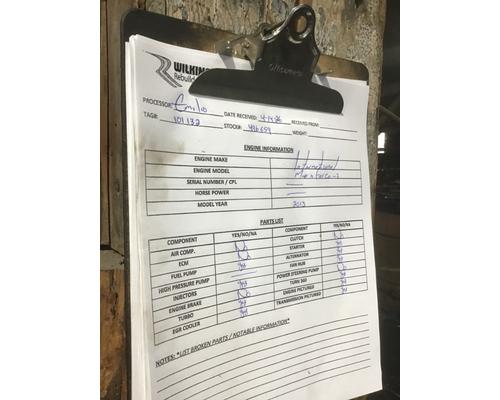 WILKINS
Rebuild
PROCESSOR: Emilio DATE RECEIVED: 4-14-26 RECEIVED FROM:
TAG#: 101132 STOCK#: 496659 WEIGHT:
ENGINE INFORMATION
ENGINE MAKE International
ENGINE MODEL
SERIAL NUMBER / CPL
HORSE POWER
MODEL YEAR 2013
PARTS LIST
COMPONENT YES/NO/NA COMPONENT YES/NO/NA
AIR COMP. No CLUTCH No
ECM No STARTER
FUEL PUMP ALTERNATOR
HIGH PRESSURE PUMP FAN HUB
INJECTORS POWER STEERING PUMP No
ENGINE BRAKE No TURN 360
TURBO ENGINE PICTURED
EGR COOLER TRANSMISSION PICTURED
NOTES: *LIST BROKEN PARTS / NOTABLE INFORMATION*